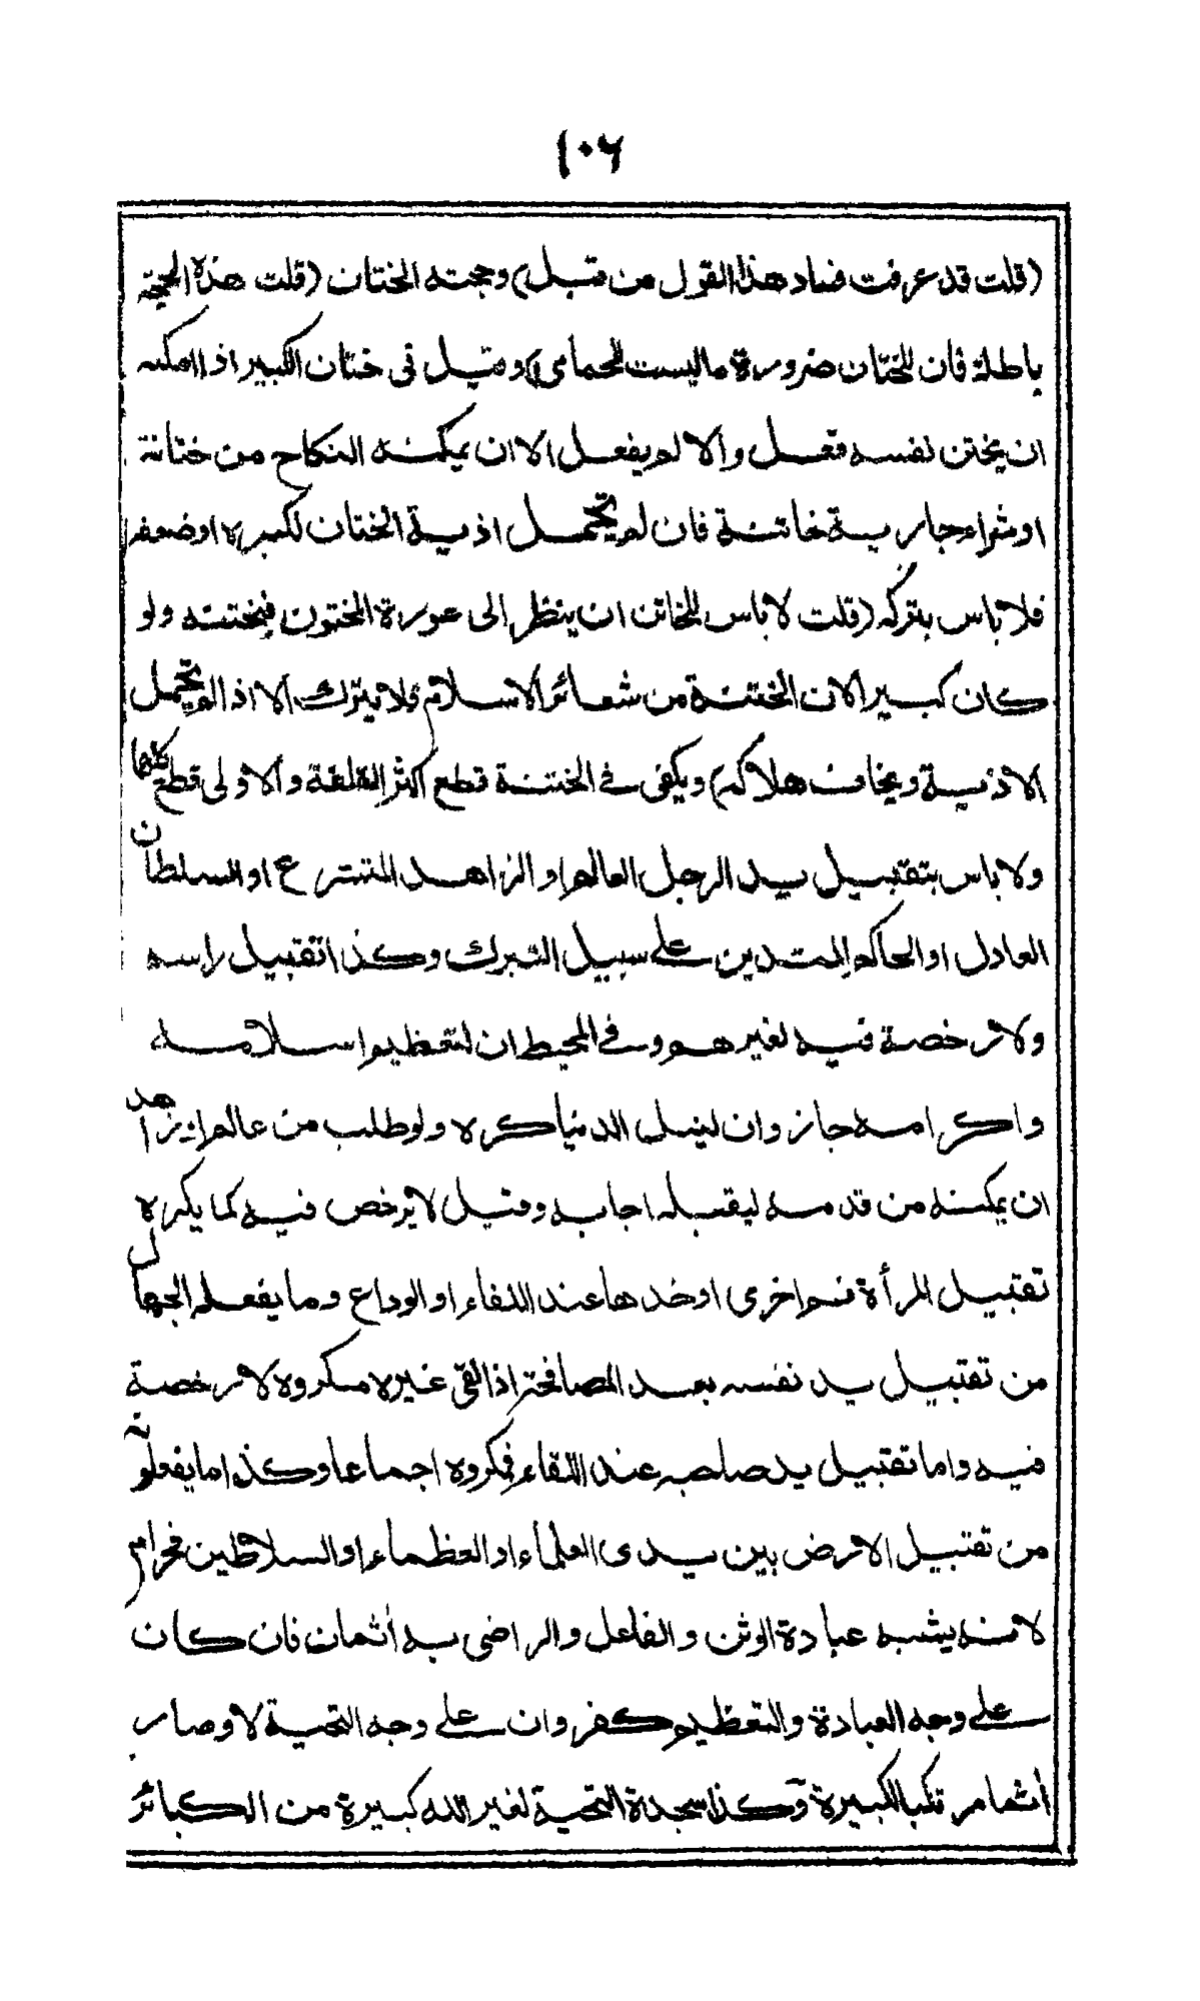 ١٠٦
(قلت قد عرفت فساد هذا القول من قبل) وحجته الختان (قلت هذه الحجة
باطلة فان للختان ضرورة ما ليست للحمامى) وقيل فى ختان الكبير اذا امكنه
ان يختن نفسه فعل والا لم يفعل الا ان يمكنه النكاح من ختانة
او شراء جارية خاتنة فان لم يتحمل اذية الختان لكبره او ضعفه
فلا باس بتركه (قلت لا باس للخاتن ان ينظر الى عورة المختون فيختنه ولو
كان كبيرا لان الختنة من شعائر الاسلام فلا يترك الا اذا لم يتحمل
الاذية ويخاف هلاكه) ويكفى فى الختنة قطع اكثر القلفة والاولى قطع كلها
ولا باس بتقبيل يد الرجل العالم او الزاهد المتشرع او السلطان
العادل او الحاكم المتدين على سبيل التبرك وكذا تقبيل راسه
ولا رخصة فيه لغيرهم وفى المحيط ان لتعظيم اسلامه
واكرامه جاز وان لنيل الدنيا كره ولو طلب من عالم او زاهد
ان يمكنه من قدمه ليقبله اجابه وقيل لا يرخص فيه كما يكره
تقبيل المرأة فم اخرى او خدها عند اللقاء او الوداع وما يفعله الجهال
من تقبيل يد نفسه بعد المصافحة اذا لقى غيره مكروه لا رخصة
فيه واما تقبيل يد صاحبه عند اللقاء فمكروه اجماعا وكذا ما يفعلونه
من تقبيل الارض بين يدى العلماء او العظماء او السلاطين فحرام
لانه يشبه عبادة الوثن والفاعل والراضى به أثمان فان كان
على وجه العبادة والتعظيم كفر وان على وجه التحية لا وصار
أثما مرتكبا للكبيرة وكذا سجدة التحية لغير الله كبيرة من الكبائر